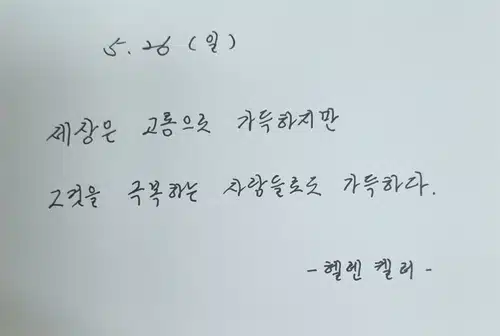 5. 26 (일)
세상은 고통으로 가득하지만
그것을 극복하는 사람들로도 가득하다.
- 헬렌 켈러 -